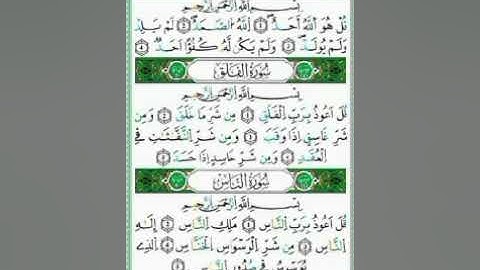 بِسْمِ اللَّهِ الرَّحْمَٰنِ الرَّحِيمِ
قُلْ هُوَ اللَّهُ أَحَدٌ ١ اللَّهُ الصَّمَدُ ٢ لَمْ يَلِدْ
وَلَمْ يُولَدْ ٣ وَلَمْ يَكُن لَّهُ كُفُوًا أَحَدٌ ٤
سُورَةُ الفَلَقِ
بِسْمِ اللَّهِ الرَّحْمَٰنِ الرَّحِيمِ
قُلْ أَعُوذُ بِرَبِّ الْفَلَقِ ١ مِن شَرِّ مَا خَلَقَ ٢ وَمِن
شَرِّ غَاسِقٍ إِذَا وَقَبَ ٣ وَمِن شَرِّ النَّفَّٰثَٰتِ فِي
الْعُقَدِ ٤ وَمِن شَرِّ حَاسِدٍ إِذَا حَسَدَ ٥
سُورَةُ النَّاسِ
بِسْمِ اللَّهِ الرَّحْمَٰنِ الرَّحِيمِ
قُلْ أَعُوذُ بِرَبِّ النَّاسِ ١ مَلِكِ النَّاسِ ٢ إِلَٰهِ
النَّاسِ ٣ مِن شَرِّ الْوَسْوَاسِ الْخَنَّاسِ ٤ الَّذِي
يُوَسْوِسُ فِي صُدُورِ النَّاسِ ٥